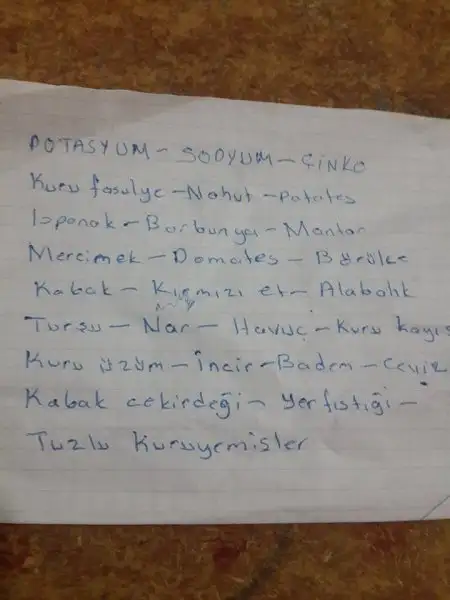 POTASYUM - SODYUM - ÇİNKO
Kuru fasulye - Nohut - Patates
Ispanak - Barbunya - Mantar
Mercimek - Domates - Börülce
Kabak - Kırmızı et - Alabalık
Turşu - Nar - Havuç - Kuru kayıs
Kuru üzüm - İncir - Badem - Ceviz
Kabak cekirdeği - Yer fıstığı -
Tuzlu Kuruyemişler